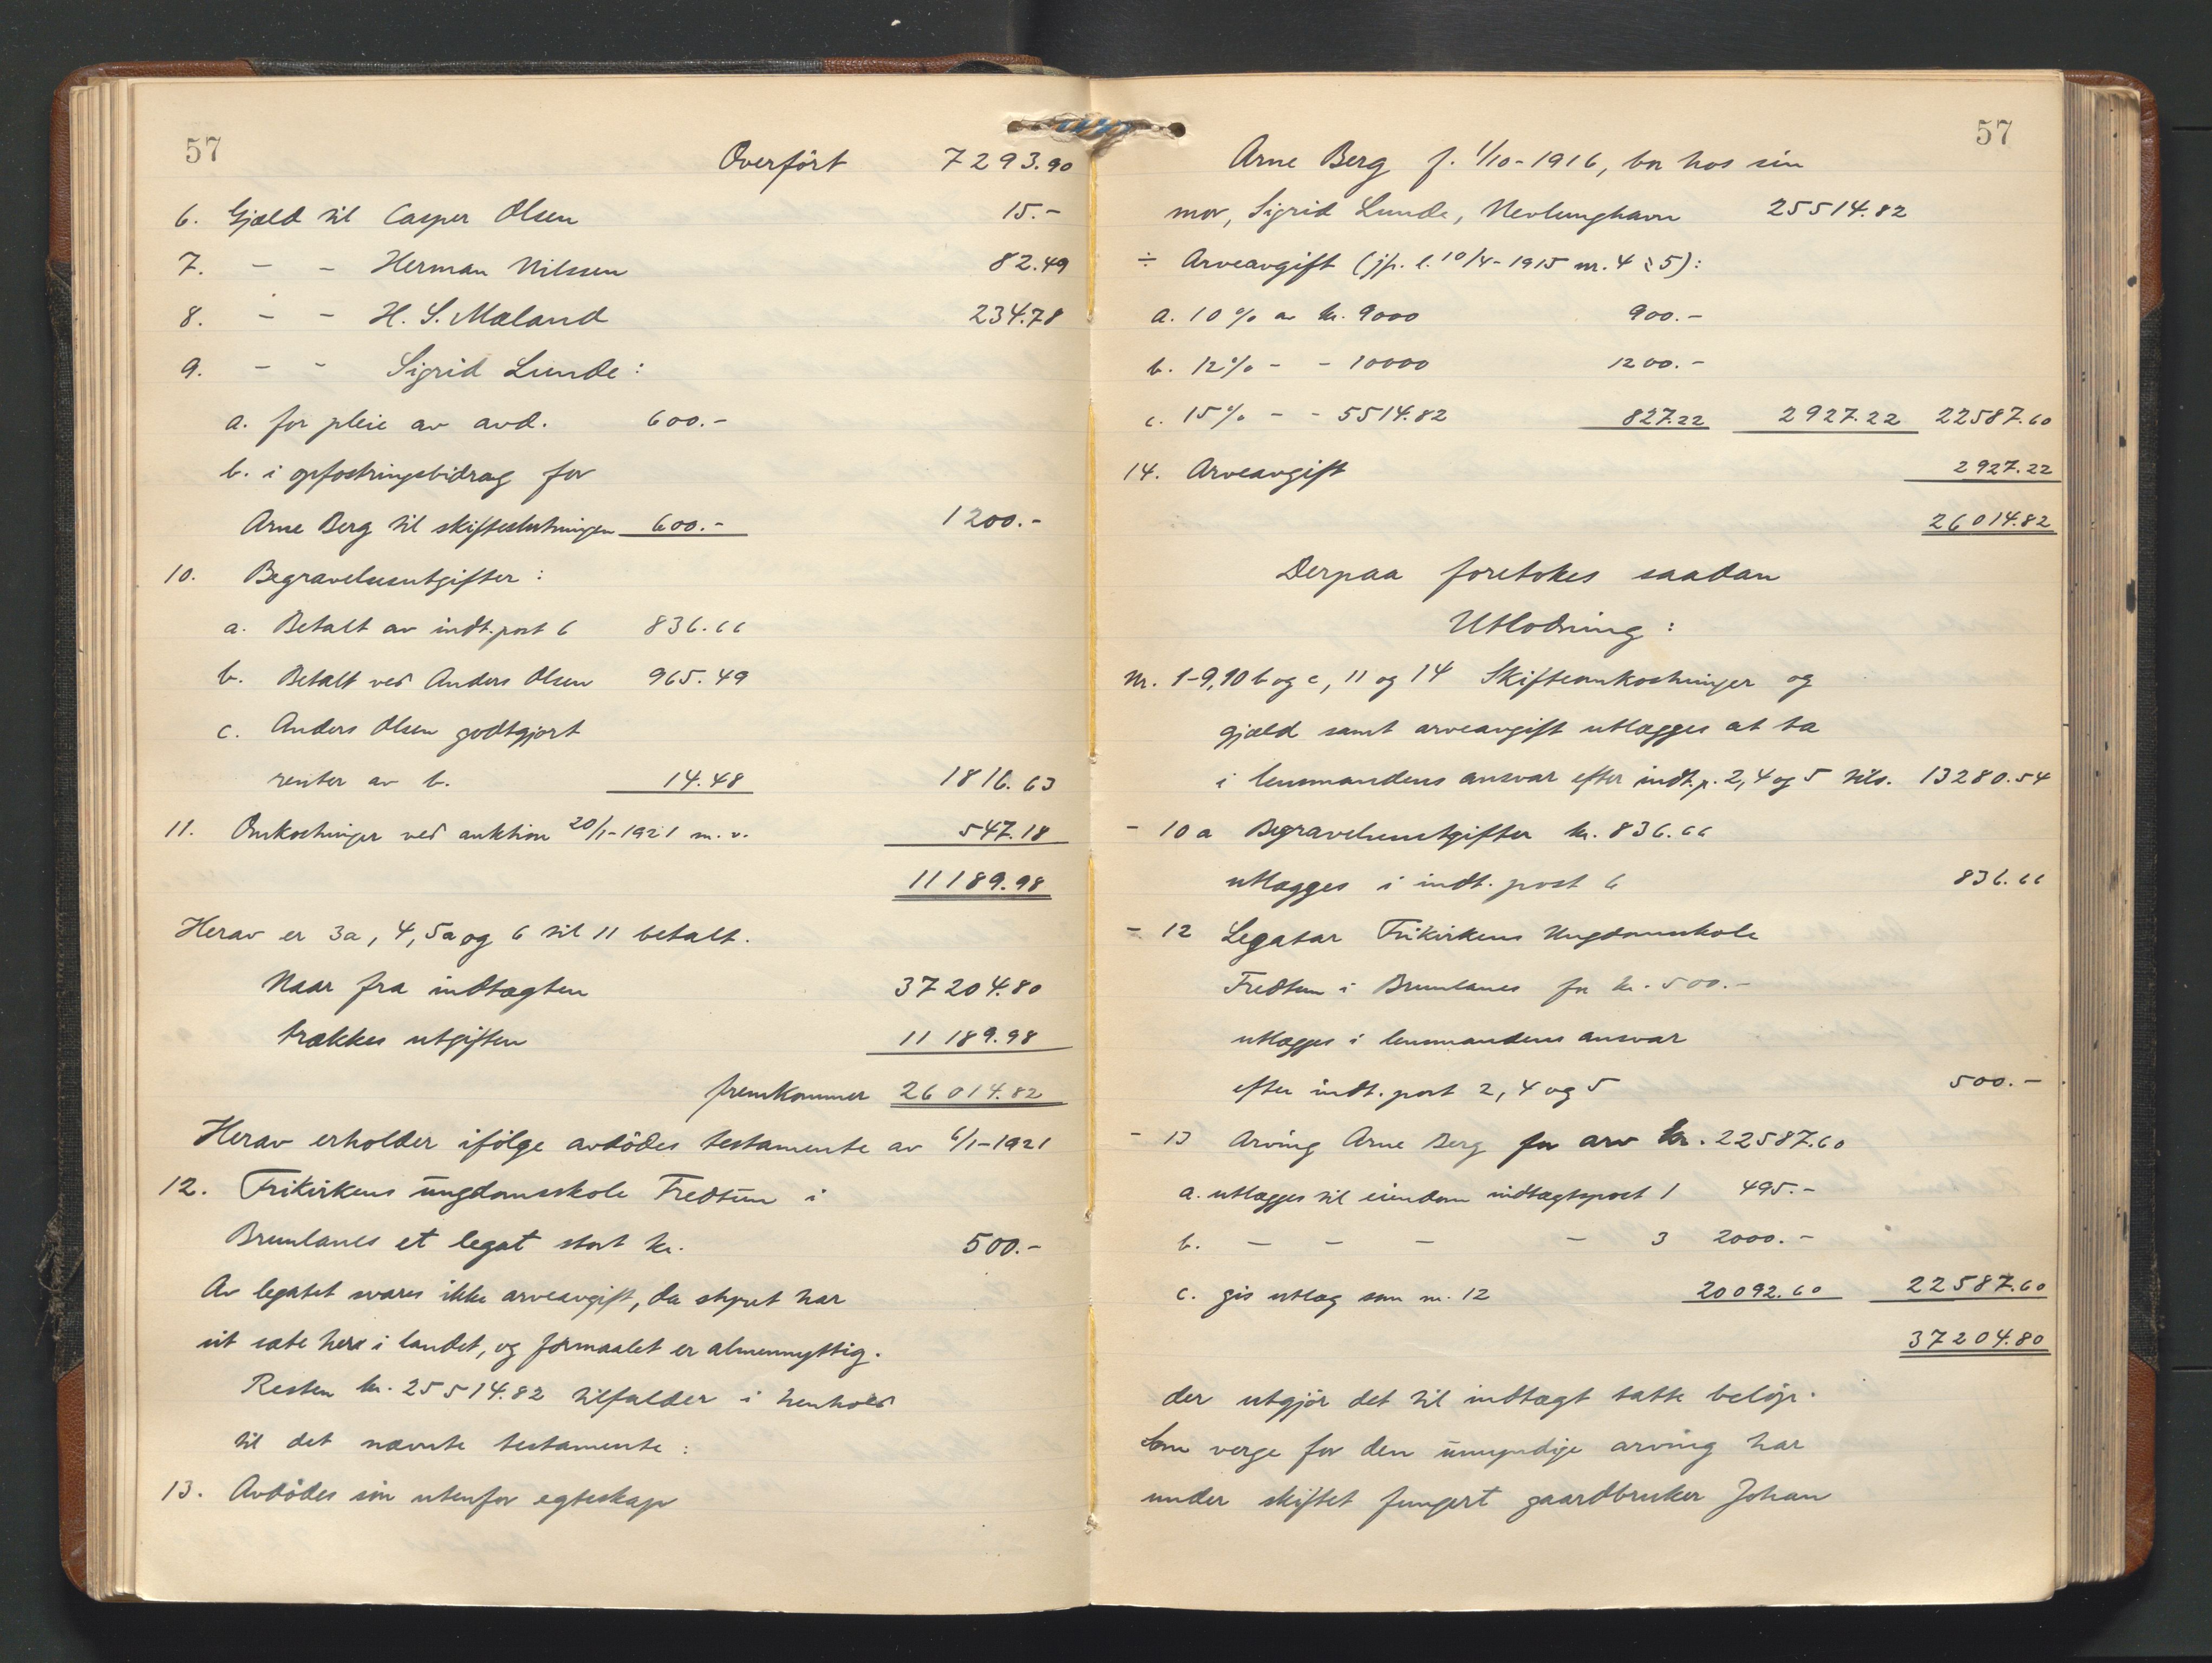 57
Overført 7293.90
6. Gjæld til Casper Olsen 15.-
7. - - Herman Nilssen 82.49
8. - - H. S. Mæland 234.78
9. - - Sigrid Lunde:
a. for pleie av avd. 600.-
b. i opfostringsbidrag for
Arne Berg til skifteslutningen 600.- 1200.-
10. Begravelsesutgifter:
a. Betalt av indt. post 6 836.66
b. Betalt ved Anders Olsen 965.49
c. Anders Olsen godtgjort
renter av b. 14.48 1816.63
11. Omkostninger ved auktion 20/1-1921 m.v. 547.18
11189.98
Herav er 3a, 4, 5a og 6 til 11 betalt.
Naar fra indtægten 37204.80
trækkes utgiften 11189.98
fremkommer 26014.82
Herav erholder ifølge avdødes testamente av 6/1-1921
12. Frikirkens ungdomsskole Fredtun i
Brunlanes et legat stort kr. 500.-
Av legatet svares ikke arveavgift, da styret har
sit sæte her i landet, og formaalet er almennyttig.
Resten kr. 25514.82 tilfalder i henhold
til det nævnte testamente:
13. Avdødes søn utenfor egteskap
57
Arne Berg f. 1/10-1916, bor hos sin
mor, Sigrid Lunde, Nevlunghavn 25514.82
÷ Arveavgift (jfr. l. 10/4-1915 nr. 4 § 5):
a. 10 % av kr. 9000 900.-
b. 12% - - 10000 1200.-
c. 15% - - 5514.82 827.22 2927.22 22587.60
14. Arveavgift 2927.22
26014.82
Derpaa foretokes saadan
Utlodning:
Nr. 1-9, 10 b og c, 11 og 14 Skifteomkostninger og
gjæld samt arveavgift utlægges at ta
i lensmandens ansvar efter indt. p. 2, 4 og 5 tils. 13280.54
- 10 a Begravelsesutgifter kr. 836.66
utlægges i indt. post 6 836.66
- 12 Legatar Frikirkens Ungdomsskole
Fredtun i Brunlanes for kr. 500.-
utlægges i lensmandens ansvar
efter indt. post 2, 4 og 5 500.-
- 13 Arving Arne Berg for arv kr. 22587.60
a. utlægges til eiendom indtægtspost 1 495.-
b. - - - - 3 2000.-
c. gis utlæg som nr. 12 20092.60 22587.60
37204.80
der utgjør det til indtægt tatte beløp.
Som verge for den umyndige arving har
under skiftet fungert gaardbruker Johan